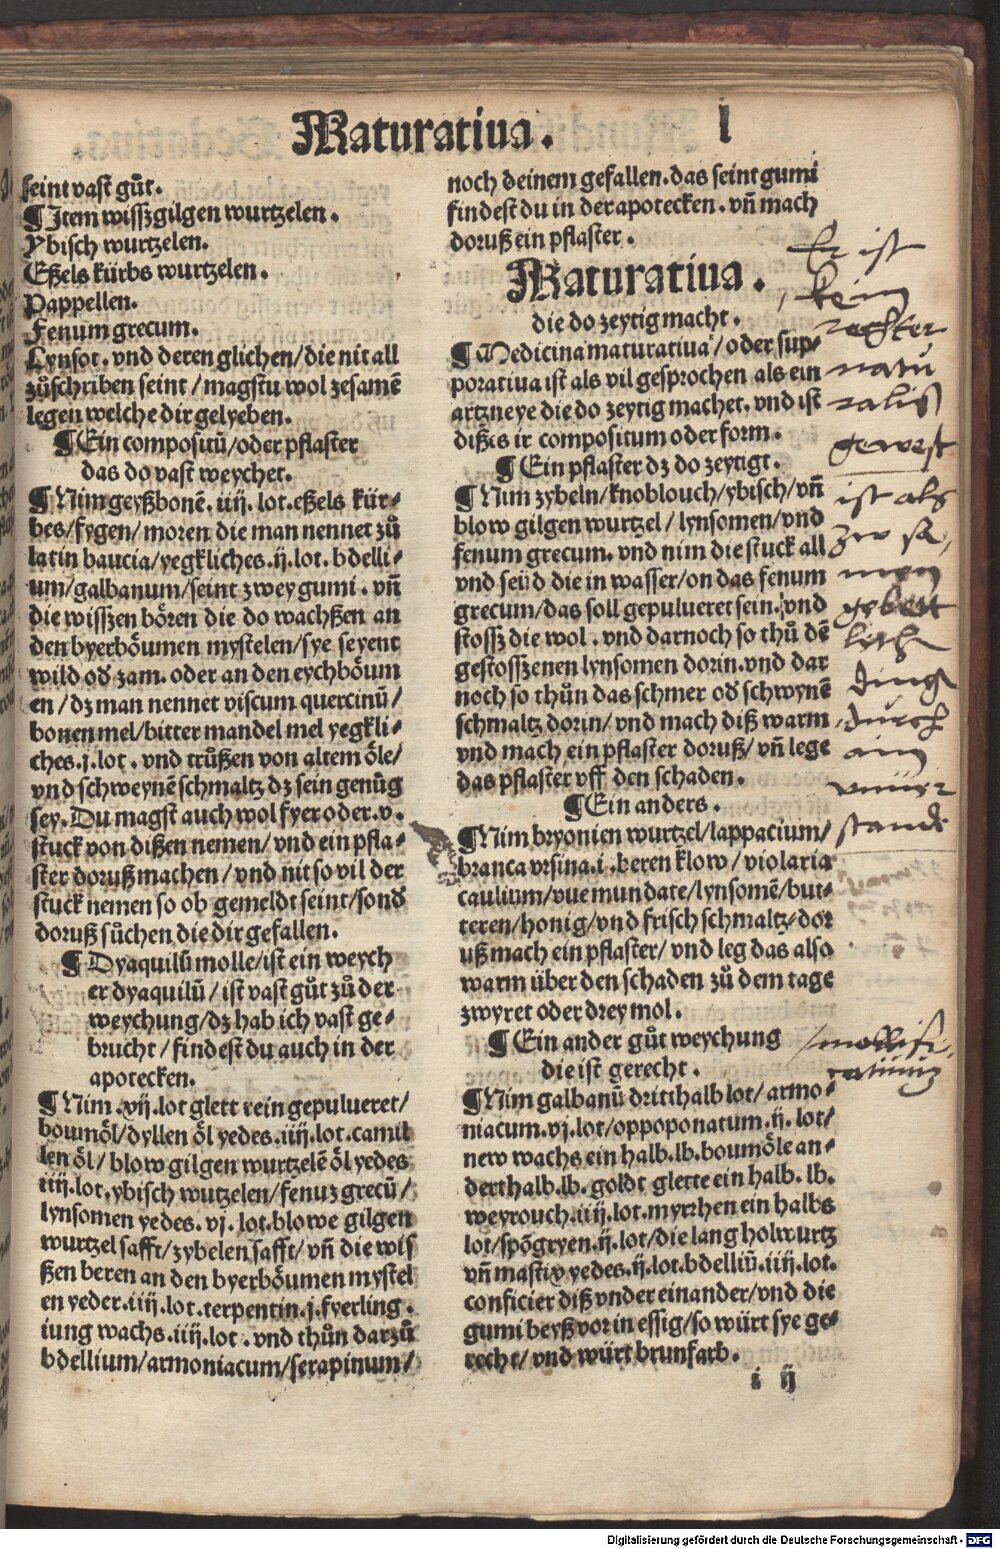 Maturatiua. l
seint vast gůt.
¶Item wissz gilgen wurtzelen.
Ybisch wurtzelen.
Eßels kürbs wurtzelen.
Pappellen.
Fenum grecum.
Lynsot. vnd deren glichen/die nit all
zůschriben seint/magstu wol zesamē
legen welche dir gelyeben.
¶Ein compositū/oder pflaster
das do vast weychet.
¶Nim geyßbonē.iiij.lot.eßels kür-
bes/fygen/moren die man nennet zů
latin baucia/yegkliches.ij.lot.bdelli-
um/galbanum/seint zwey gumi.vñ
die wisszen bören die do wachßen an
den byerböumen mystelen/sye seyent
wild oď zam.oder an den eychböum
en/dz man nennet viscum quercinū/
bonen mel/bitter mandel mel yegkli-
ches.j.lot.vnd trůßen von altem öle/
vnd schweynē schmaltz dz sein genůg
sey.Du magst auch wol fyer oder.v.
stuck von dißen nemen/vnd ein pfla-
ster doruß machen/vnd nit so vil der
stuck nemen so ob gemeldt seint/sonď
doruß sůchen die dir gefallen.
¶Dyaquilū molle/ist ein weych
er dyaquilū/ist vast gůt zů der
weychung/dz hab ich vast ge-
brucht/findest du auch in der
apotecken.
¶Nim.vij.lot glett rein gepulueret/
boumöl/dyllen öl yedes.iiij.lot.camil
len öl/blow gilgen wurtzelē öl yedes
iiij.lot.ybisch wutzelen/fenuz grecū/
lynsomen yedes.vj.lot.blowe gilgen
wurtzel safft/zybelen safft/vñ die wis
ßen beren an den byerböumen mystel
en yeder.iiij.lot.terpentin.j.fyerling.
iung wachs.iiij.lot.vnd thůn darzů
bdellium/armoniacum/serapinum/
noch deinem gefallen.das seint gumi
findest du in der apotecken.vñ mach
doruß ein pflaster.
Maturatiua.
die do zeytig macht.
¶Medicina maturatiua/oder sup-
poratiua ist als vil gesprochen als ein
artzneye die do zeytig machet.vnd ist
dißes ir compositum oder form.
¶Ein pflaster dz do zeytigt.
¶Nim zybeln/knoblouch/ybisch/vñ
blow gilgen wurtzel/lynsomen/vnd
fenum grecum.vnd nim die stuck all
vnd seüd die in wasser/on das fenum
grecum/das soll gepulueret sein.vnd
stossz die wol.vnd darnoch so thů dē
gestosszenen lynsomen dorin.vnd dar
noch so thůn das schmer oď schwynē
schmaltz dorin/vnd mach diß warm
vnd mach ein pflaster doruß/vñ lege
das pflaster vff den schaden.
¶Ein anders.
¶Nim bryonien wurtzel/lappacium/
branca vrsina.i.beren klow/violaria
caulium/vue mundate/lynsomē/but-
teren/honig/vnd frisch schmaltz/dor
uß mach ein pflaster/vnd leg das also
warm über den schaden zů dem tage
zwyret oder drey mol.
¶Ein ander gůt weychung
die ist gerecht.
¶Nim galbanū dritthalb lot/armo-
niacum.vj.lot/oppoponatum.ij.lot/
new wachs ein halb.lb.boumöle an-
derthalb.lb.goldt glette ein halb.lb.
weyrouch.iiij.lot.myrrhen ein halbs
lot/spōgryen.ij.lot/die lang holwurtz
vñ mastix yedes.ij.lot.bdelliū.iiij.lot.
conficier diß vnder einander/vnd die
gumi beyß vor in essig/so würt sye ge-
recht/vnd würt brunfarb.
i ij
Er ist
kein
rechter
natu
ralis
gewest
ist als
zw sa,
men
gebett
lich
ding
durch
ain
vnuer
stande
mollifi
catiuum
Digitalisierung gefördert durch die Deutsche Forschungsgemeinschaft - DFG